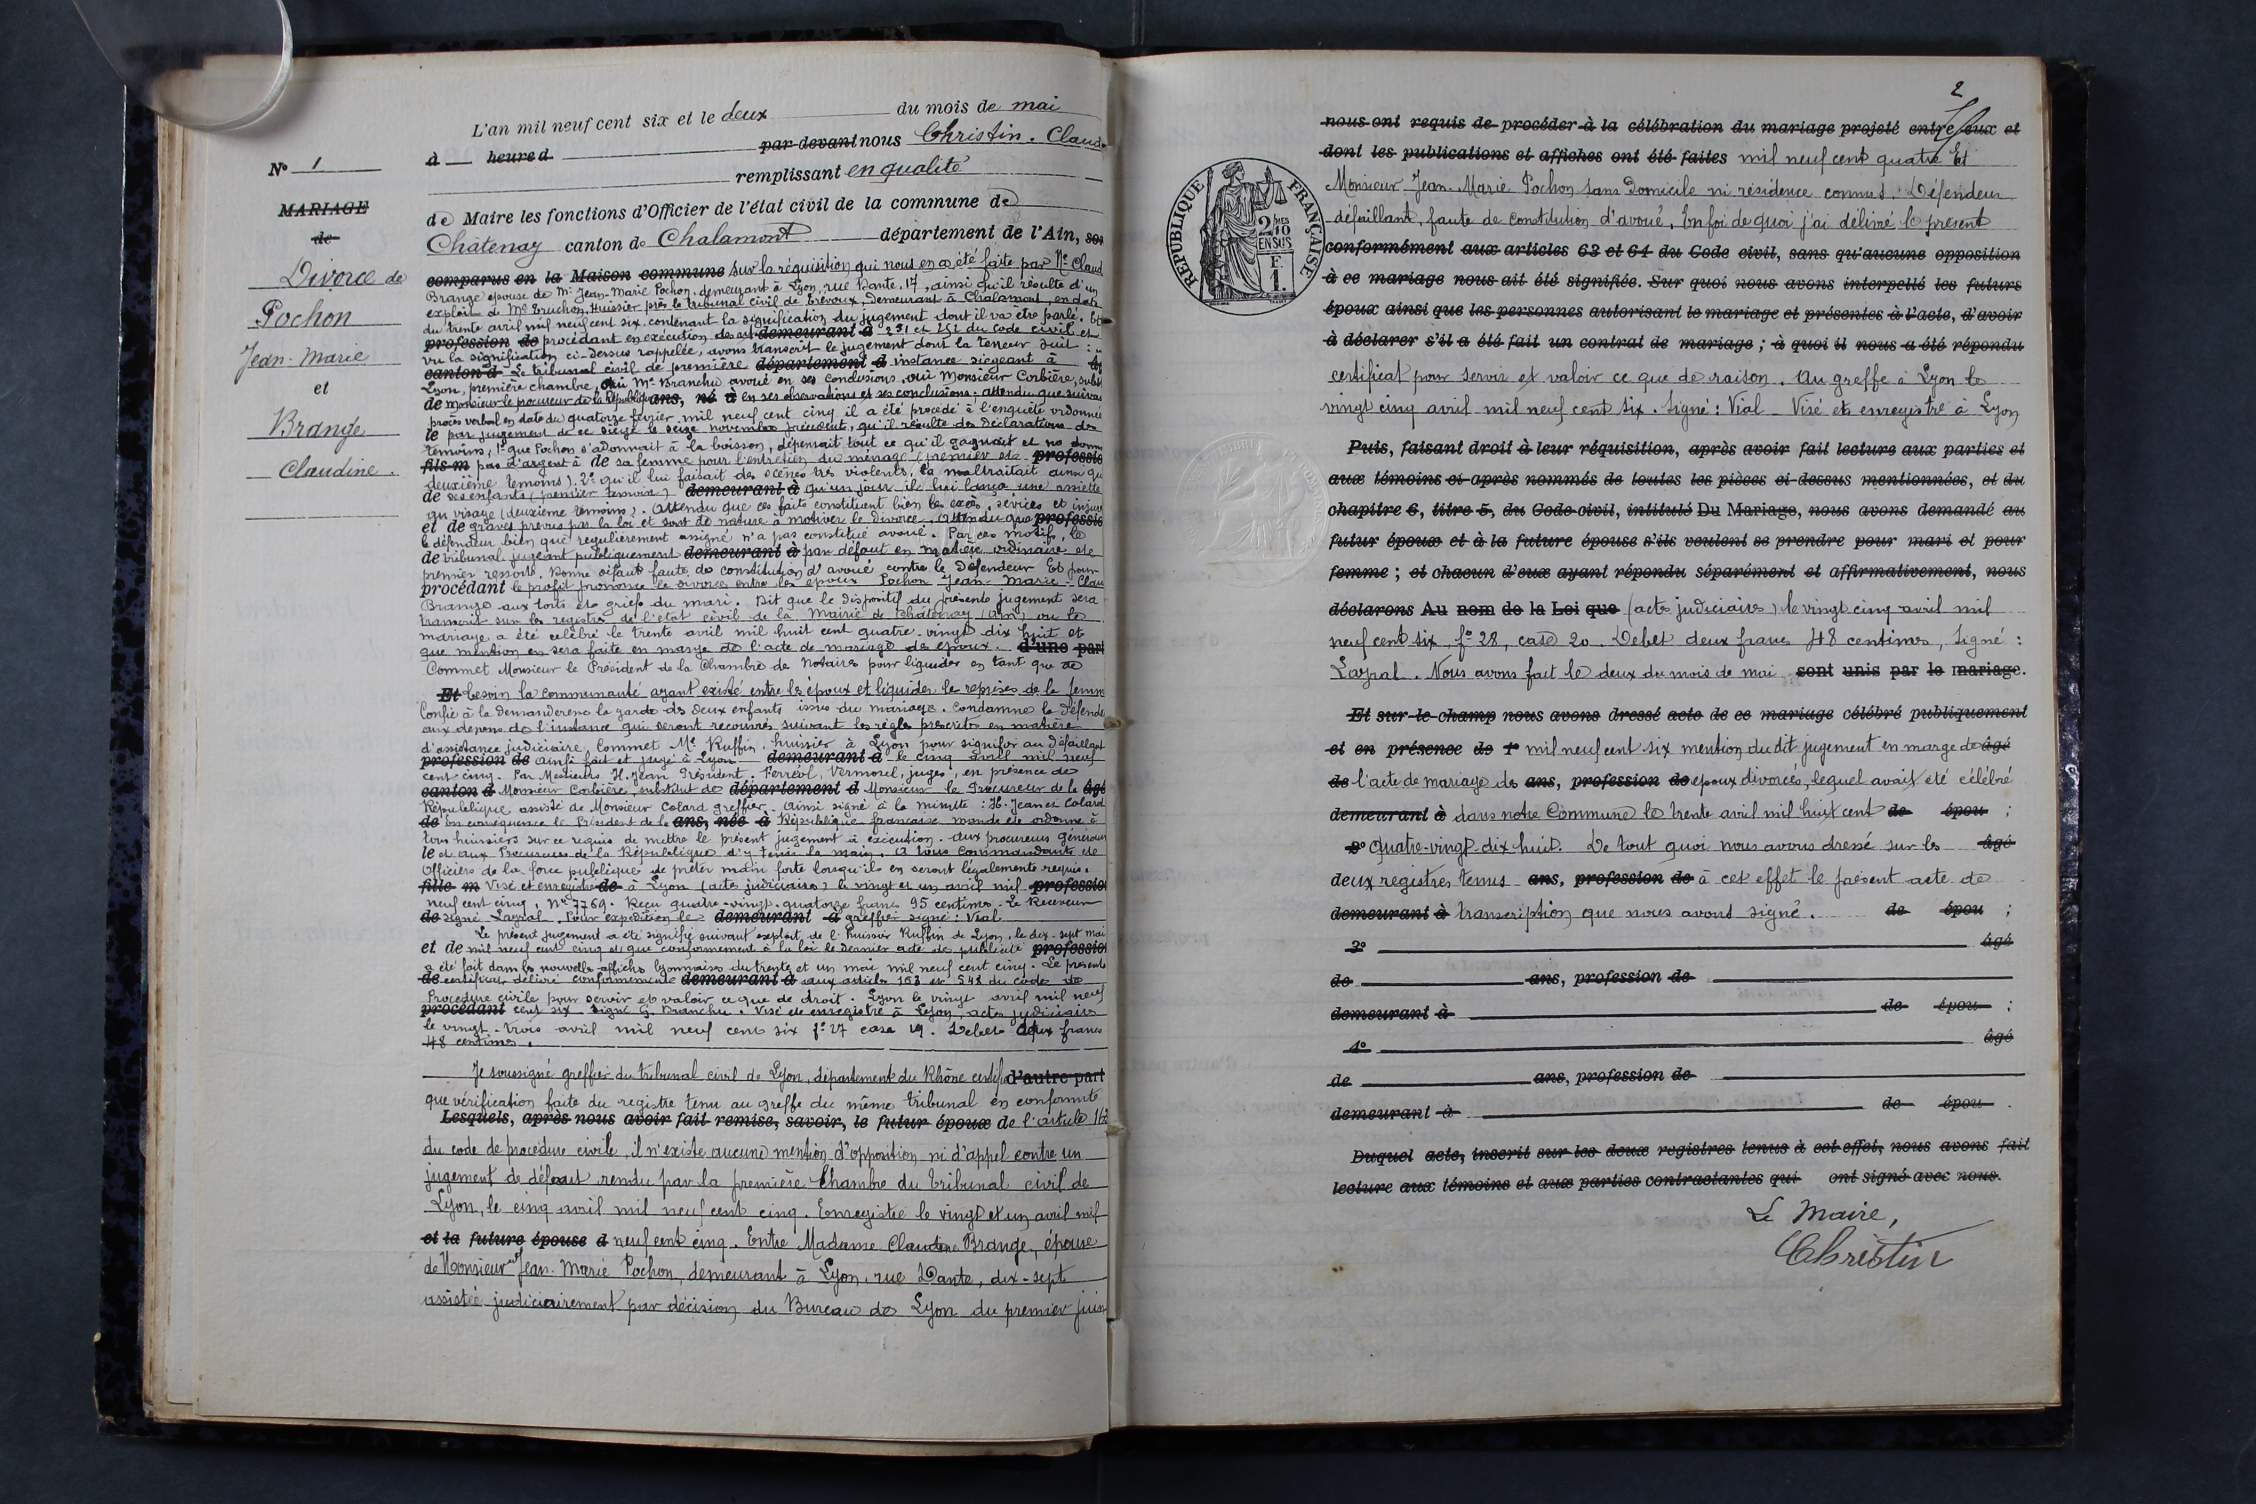 L'an mil neuf cent six et le deux du mois de mai
à heure d par devant nous Christin. Claude
remplissant en qualité
de Maire les fonctions d'Officier de l'état civil de la commune de
Châtenay canton de Chalamont département de l'Ain, son
N° 1
MARIAGE
de
Divorce de
Pochon
Jean-Marie
et
Brange
Claudine.
comparus en la Maison commune Sur la réquisition qui nous en a été faite par Me Claud
Brange épouse de Mr Jean-Marie Pochon. demeurant à Lyon, rue Dante. 17, ainsi qu'il résulte d'un
exploit de Me Bruchon, Huissier près le tribunal civil de Trévoux, demeurant à Chalamont, en date
du trente avril mil neuf cent six. contenant la signification du jugement dont il va être parlé. Et
profession de procédant en exécution des art. demeurant à 251 et 252 du code civil et
vu la signification ci-dessus rappelée, avons transcrit le jugement dont la teneur suit :
canton d Le tribunal civil de première département d instance siégeant à
Lyon, première chambre, Oui Me Branchu avoué en ses conclusions, oui Monsieur Corbière, subst
de monsieur le procureur de la République ans, né à en ses observations et ses conclusions; attendu que suivant
procès verbal en date du quatorze février mil neuf cent cinq il a été procédé à l'enquête ordonnée
le par jugement de ce siège le seize novembre précédent, qu'il résulte des déclarations des
témoins, 1° que Pochon s'adonnait à la boisson, dépensait tout ce qu'il gagnait et ne donn
fils m pas d'argent à de sa femme pour l'entretien du ménage (premier et professio
deuxième témoins). 2° qu'il lui faisait des scènes très violents, la maltraitait ainsi qu
de ses enfants (premier témoin) demeurant à qu'un jour il lui lança une assiette
au visage (deuxième témoins). Attendu que ces faits constituent bien les excès, sévices et injure
et de graves prévus par la loi et sont de nature à motiver le divorce. Attendu que professio
le défendeur bien que régulièrement assigné n'a pas constitué avoué. Par ces motifs, le
de tribunal jugeant publiquement demeurant à par défaut en matière ordinaire et
premier ressort. Donne défaut faute de constitution d'avoué contre le Défendeur Et pour
procédant le profit prononce le divorce entre les époux Pochon Jean-Marie-Clau
Brange aux torts et griefs du mari. Dit que le dispositif du présent jugement sera
transcrit sur les registres de l'état civil de la Mairie de Châtenay (Ain) ou le
mariage a été célébré le trente avril mil huit cent quatre-vingt dix huit et
que mention en sera faite en marge de l'acte de mariage des époux. d'une part
Commet Monsieur le Président de la Chambre des Notaires pour liquider en tant que de
Et besoin la communauté ayant existé entre les époux et liquider les reprises de la femme
Confie à la demanderesse la garde des deux enfants issus du mariage. Condamne le Défende
aux dépens de l'instance qui seront recouvrés suivant les règles prescrites en matière
d'assistance judiciaire, Commet Me Ruffin. huissier à Lyon pour signifier au défaillant
profession de ainsi fait et jugé à Lyon demeurant à le cinq avril mil neuf
cent cinq. Par Messieurs H. Jean Président. Ferréol, Vermorel, juges, en présence de
canton d Monsieur Corbière, substitut de département d Monsieur le Procureur de la âgé
République assisté de Monsieur Colard greffier. ainsi signé à la minute : H. Jean et Colard
de En conséquence le Président de la ans, née à République française mande et ordonne à
tous huissiers sur ce requis de mettre le présent jugement à exécution. aux procureurs généraux
le d aux Procureurs de la République d'y tenir la main. à tous Commandants et
Officiers de la force publique de prêter main forte lorsqu'ils en seront légalement requis.
fille m Visé et enregistré de à Lyon (actes judiciaires) le vingt et un avril mil professio
neuf cent cinq, N° 7769. Reçu quatre-vingt-quatorze francs 95 centimes. Le Receveur
de signé Layral. Pour expédition le demeurant à greffier signé : Vial
Le présent jugement a été signifié suivant exploit de l'huissier Ruffin de Lyon, le dix-sept mai
et de mil neuf cent cinq et que conformément à la loi le dernier acte de publicité professio
a été fait dans les nouvelles affiches lyonnaises du trente et un mai mil neuf cent cinq. Le présent
de certificat délivré conformément demeurant à aux articles 163 et 548 du code de
Procédure civile pour servir et valoir ce que de droit. Lyon le vingt avril mil neuf
procédant cent six signé G. Branchu. Visé et enregistré à Lyon, actes judiciaires
le vingt-trois avril mil neuf cent six f° 27 case 19. Debet deux francs
48 centimes.
Je soussigné greffier du tribunal civil de Lyon, département du Rhône certifie d'autre part
que vérification faite du registre tenu au greffe du même tribunal en conformité
Lesquels, après nous avoir fait remise, savoir, le futur époux de l'article 163
du code de procédure civile, il n'existe aucune mention d'opposition ni d'appel contre un
jugement de défaut rendu par la première Chambre du tribunal civil de
Lyon, le cinq avril mil neuf cent cinq. Enregistré le vingt et un avril mil
et la future épouse d neuf cent cinq. Entre Madame Claudine Brange, épouse
de Monsieur Jean-Marie Pochon, demeurant à Lyon, rue Dante, dix-sept
assistée judiciairement par décision du Bureau de Lyon du premier juin
2
nous ont requis de procéder à la célébration du mariage projeté entre eux et
dont les publications et affiches ont été faites mil neuf cent quatre Et
Monsieur Jean-Marie Pochon sans Domicile ni résidence connus. Défendeur
défaillant, faute de constitution d'avoué. En foi de quoi j'ai délivré le présent
RÉPUBLIQUE FRANÇAISE
2/10
EN SUS
F.
1.
conformément aux articles 63 et 64 du Code civil, sans qu'aucune opposition
à ce mariage nous ait été signifiée. Sur quoi nous avons interpellé les futurs
époux ainsi que les personnes autorisant le mariage et présentes à l'acte, d'avoir
à déclarer s'il a été fait un contrat de mariage ; à quoi il nous a été répondu
certificat pour servir et valoir ce que de raison. Au greffe à Lyon le
vingt cinq avril mil neuf cent six. Signé : Vial _ Visé et enregistré à Lyon
Puis, faisant droit à leur réquisition, après avoir fait lecture aux parties et
aux témoins ci-après nommés de toutes les pièces ci-dessus mentionnées, et du
chapitre 6, titre 5, du Code civil, intitulé Du Mariage, nous avons demandé au
futur époux et à la future épouse s'ils veulent se prendre pour mari et pour
femme ; et chacun d'eux ayant répondu séparément et affirmativement, nous
déclarons Au nom de la Loi que (actes judiciaires) le vingt cinq avril mil
neuf cent six, f° 28, case 20. Debet deux francs 48 centimes, Signé :
Layral. Nous avons fait le deux du mois de mai sont unis par le mariage.
Et sur-le-champ nous avons dressé acte de ce mariage célébré publiquement
et en présence de 1° mil neuf cent six mention du dit jugement en marge de âgé
de l'acte de mariage des ans, profession de époux divorcés, lequel avait été célébré
demeurant à dans notre Commune le trente avril mil huit cent de épou ;
2° quatre-vingt-dix huit. De tout quoi nous avons dressé sur les âgé
deux registres tenus ans, profession de à cet effet le présent acte de
demeurant à transcription que nous avons signé. de épou ;
3° âgé
de ans, profession de
demeurant à de épou ;
4° âgé
de ans, profession de
demeurant à de épou .
Duquel acte, inscrit sur les deux registres tenus à cet effet, nous avons fait
lecture aux témoins et aux parties contractantes qui ont signé avec nous.
Le Maire,
Christin